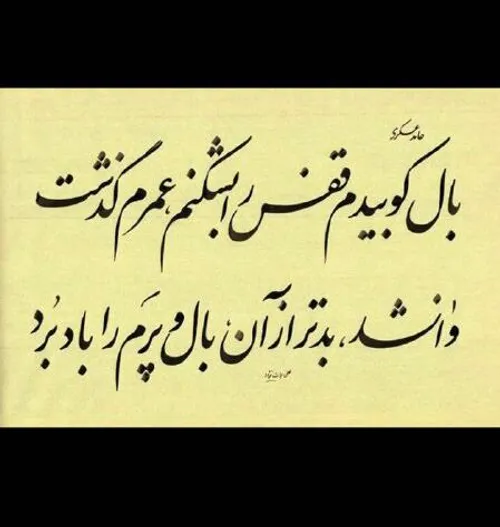 حامد عسکری
بال کوبیدم قفس را بشکنم، عمرم گذشت
وا نشد، بدتر از آن، بال و پرَم را باد بُرد